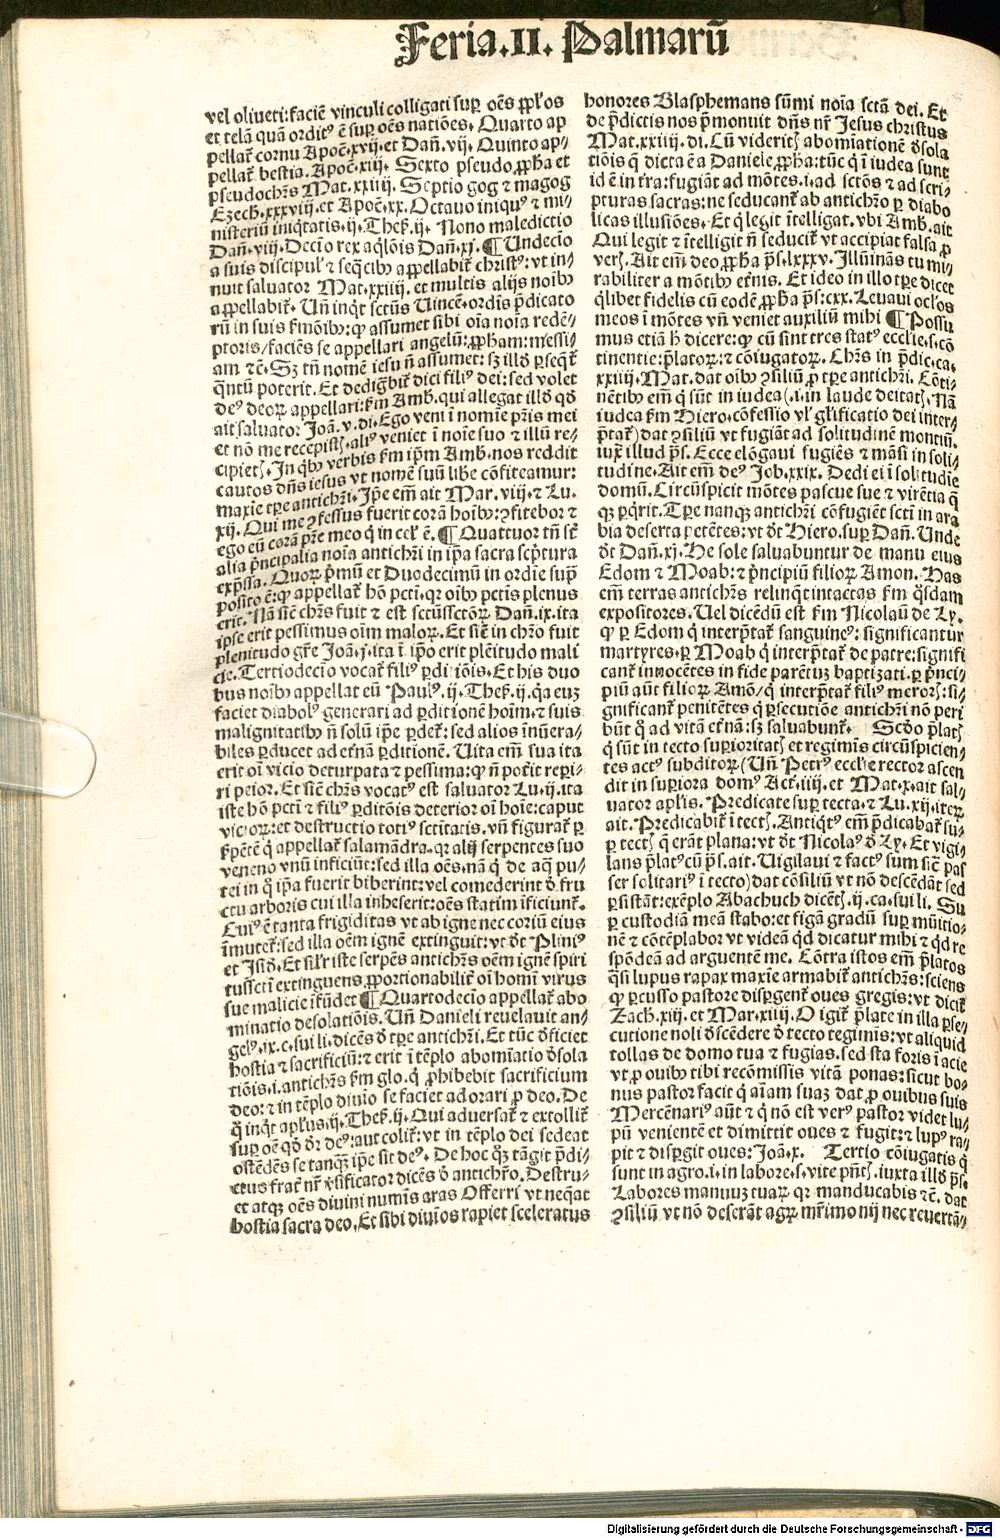 Feria.II. Palmarũ
vel oliveti: faciẽ vinculi colligati suꝑ oẽs ꝓpl'os
et telã quã orditꝰ ẽ suꝑ oẽs natiões. Quarto ap
pellat᷑ cornu Apoc̃.xvij. et Dañ. vij. Quinto ap⸗
pellat᷑ bestia. Apoc̃.xiij. Sexto pseudo ꝓp̃ha et
pseudoch̃rs Mat.xxiiij. Septĩo gog ⁊ magog
Ezech̃.xxxviij. et Apoc̃.xx. Octauo iniquꝰ ⁊ mi⸗
nisteriũ iniq̃tatis.ij. Thes̃.ij. Nono maledictio
Dañ.viij. Decĩo rex aq̃lõis Dañ.xj. ¶ Undecĩo
a suis discipul' ⁊ seq̃cibꝰ appellabit᷑ christꝰ: vt in⸗
nuit saluator Mat.xxiiij. et multis alijs noĩbꝰ
appellabit᷑. Uñ inq̃t sctũs Uincẽ. ordĩs p̃dicato
rũ in suis ẜmõibꝰ: ꝙ assumet sibi oĩa noĩa redẽ⸗
ptoris/faciẽs se appellari angelũ: ꝓpham: messi⸗
am ⁊c̃. Sʒ tñ nomẽ iesu ñ assumet: sʒ illđ ꝑseq̃t᷑
q̃ntũ poterit. Et dedigbit᷑ dici filiꝰ dei: sed volet
deꝰ deoꝝ appellari: ẜm Amb. qui allegat illđ qđ
ait saluator Joã.v. di. Ego veni ĩ noĩe pr̃is mei
et nõ me recepistꝭ. aliꝰ veniet ĩ noĩe suo ⁊ illũ re⸗
cipietꝭ. In q̃bꝰ verbis ẜm ip̃m Amb. nos reddit
cautos dñs iesus vt nomẽ suũ libe cõfiteamur:
maxĩe tꝑe antichr̃i. Ip̃e em̃ ait Mar. viij. ⁊ Lu.
xij. Qui me ꝯfessus fuerit corã hoĩbꝰ: ꝯfitebor ⁊
ego eũ corã pr̃e meo q̃ in cel' ẽ. ¶ Quattuor tñ sẽ
alia p̃ncipalia noĩa antichr̃i in ip̃a sacra scp̃tura
exp̃ssa. Quoꝝ p̃mũ et Duodecimũ in ordĩe sup̃
posito ẽ: ꝙ appellat᷑ hõ pcti. qꝛ oĩbꝰ pctĩs plenus
erit. Nã sic̃ ch̃rs fuit ⁊ est sctũs sctõꝝ. Dañ.ix. ita
ipse erit pessimus oĩm maloꝝ. Et sic̃ in chr̃o fuit
plenitudo gr̃e Joã.j. ita ĩ ip̃o erit plẽitudo mali
cie. Tertiodecĩo vocat᷑ filiꝰ ꝑditiõis. Et his duo
bus noĩbꝰ appellat eũ Paulꝰ.ij. Thes̃.ij. q̃a euʒ
faciet diabolꝰ generari ad ꝑditionẽ hoĩm. ⁊ suis
malignitatibꝰ ñ solũ ip̃e ꝑdet᷑: sed alios inũera⸗
biles ꝑducet ad et̃nã ꝑditionẽ. Uita em̃ sua ita
erit oĩ vicio deturpata ⁊ pessima: ꝙ ñ pot̃it reꝑi⸗
ri peior. Et sic̃ ch̃rs vocatꝰ est saluator Lu.ij. ita
iste hõ pcti ⁊ filiꝰ ꝑditõis deterior oĩ hoĩe: caput
vicioꝝ: et destructio totiꝰ sctĩtatis. vñ figurat᷑ ꝑ
ẜpẽtẽ q̃ appellat᷑ salamãdra. qꝛ alij serpentes suo
veneno vnũ inficiũt: sed illa oẽs. nã q̃ de aq̃ pu⸗
tei in q̃ ip̃a fuerit biberint: vel comederint đ fru
ctu arboris cui illa inheserit: oẽs statim ĩficiunt᷑.
Cuiꝰ ẽ tanta frigiditas vt ab igne nec coriũ eius
ĩmutet᷑: sed illa oẽm ignẽ extinguit: vt đt Pliniꝰ
et Isiđ. Et sil'r iste serpẽs antich̃rs oẽm ignẽ spiri
tussctĩ extinguens, ꝓportionabilit᷑ oĩ homĩ virus
sue malicie ĩfũdet ¶ Quartodecĩo appellat᷑ abo
minatio desolatiõis. Uñ Danieli reuelauit an⸗
gelꝰ.ix.c. sui li. dicẽs đ tꝑe antichr̃i. Et tũc đficiet
hostia ⁊ sacrificiũ: ⁊ erit ĩ tẽplo abomĩatio đsola
tiõis.i. antich̃rs ẜm glo. q̃ ꝓhibebit sacrificium
deo: ⁊ in tẽplo diuĩo se faciet adorari ꝓ deo. De
q̃ inq̃t apl'us.ij. Thes̃.ij. Qui aduersat᷑ ⁊ extollit᷑
suꝑ oẽ qđ đr deꝰ: aut colit᷑: vt in tẽplo dei sedeat
ostẽdẽs se tanq̃ʒ ip̃e sit deꝰ. De hoc q̃ʒ tãgit p̃di⸗
ctus frat᷑ nr̃ ṽsificator dicẽs đ antichr̃o. Destru⸗
et atqʒ oẽs diuini numĩs aras Offerri vt neq̃at
hostia sacra deo. Et sibi diuĩos rapiet sceleratus
honores Blasphemans sũmi noĩa sctã dei. Et
de p̃dictis nos p̃monuit dñs nr̃ Jesus christus
Mat.xxiiij. di. Cũ videritꝭ abomiationẽ đsola
tiõis q̃ dicta ẽ a Daniele, ꝓpha: tũc q̃ ĩ iudea sunt
id ẽ in tr̃a: fugiãt ad mõtes.i. ad sctõs ⁊ ad scri⸗
pturas sacras: ne seducant᷑ ab antichr̃o ꝑ diabo
licas illusiões. Et q̃ legit ĩtelligat. vbi Amb. ait
Qui legit ⁊ ĩtelligit ñ seducit᷑ vt accipiat falsa ꝓ
verꝭ. Ait em̃ deo, ꝓpha p̃s.lxxxv. Illũinãs tu mi⸗
rabiliter a mõtibꝰ et̃nis. Et ideo in illo tꝑe dicet
q̃libet fidelis cũ eodẽ, ꝓpha p̃s: cxx. Leuaui ocl'os
meos ĩ mõtes vñ veniet auxiliũ mihi ¶ Possu
mus etiã h̃ dicere: ꝙ cũ sint tres statꝰ ecclie.s. cõ
tinentie: p̃latoꝝ: ⁊ cõiugatoꝝ. Ch̃rs in p̃dic.ca.
xxiiij. Mat. dat oĩbꝰ ꝯsiliũ, ꝓ tꝑe antichr̃i. Cõti⸗
nẽtibꝰ em̃ q̃ sũt in iudea (.i. in laude deitatꝭ. Nã
iudea ẜm Hiero. cõfessio vl' gl'ificatio dei inter⸗
p̃tat᷑) dat ꝯsiliũ vt fugiãt ad solitudinẽ montiũ.
iux̃ illud p̃s. Ecce elõgaui fugiẽs ⁊ mãsi in soli⸗
tudine. Ait em̃ deꝰ Job.xxix. Dedi ei ĩ solitudĩe
domũ. Circũspicit mõtes pascue sue ⁊ virẽtia q̃
qʒ ꝑq̃rit. Tꝑe nanqʒ antichr̃i cõfugiẽt sctĩ in ara
bia deserta petẽtes: vt đt Hiero. suꝑ Dañ. Unde
đt Dañ.xj. He sole saluabuntur de manu eius
Edom ⁊ Moab: ⁊ p̃ncipiũ filioꝝ Amon. Has
em̃ terras antich̃rs relinq̃t intactas ẜm q̃sdam
expositores. Uel dicẽdũ est ẜm Nicolaũ de Ly.
ꝙ ꝑ Edom q̃ interp̃tat᷑ sanguineꝰ: significantur
martyres. ꝑ Moab q̃ interp̃tat᷑ de patre: signifi
cant᷑ innocẽtes in fide parẽtuʒ baptizati. ꝑ p̃nci⸗
piũ aũt filioꝝ Amõ/q̃ interp̃tat᷑ filiꝰ merorꝭ: si⸗
gnificant᷑ penitẽtes q̃ ꝑsecutiõe antichr̃i nõ peri
bũt q̃ ad vitã et̃nã: sʒ saluabunt᷑. Scđo p̃latꝭ
q̃ sũt in tecto superioritatꝭ et regimĩs circũspicien⸗
tes actꝰ subditoꝝ (Uñ Petrꝰ ecclie rector ascen
dit in suꝑiora domꝰ Act᷑.iiij. et Mat.x. ait sal⸗
uator apl'is. Predicate suꝑ tecta. ⁊ Lu.xij. iteꝝ
ait. Predicabit᷑ ĩ tectꝭ. Antiq̃tꝰ em̃ p̃dicabat᷑ su⸗
ꝑ tectꝭ q̃ erãt plana: vt đt Nicolaꝰ đ Ly. Et vigi⸗
lans p̃latꝰ cũ p̃s. ait. Uigilaui ⁊ factꝰ sum sic̃ pas
ser solitariꝰ ĩ tecto) dat cõsiliũ vt nõ descẽdãt sed
ꝑsistãt: exẽplo Abachuch dicẽtꝭ.ij.ca. sui li. Su
ꝑ custodiã meã stabo: et figã gradũ suꝑ mũitio⸗
nẽ ⁊ cõtẽplabor vt videã q̃d dicatur mihi ⁊ q̃d re
spõdeã ad arguentẽ me. Cõtra istos em̃ p̃latos
q̃si lupus rapax maxĩe armabit᷑ antich̃rs: sciens
ꝙ ꝑcusso pastore disꝑgent᷑ oues gregis: vt dicit᷑
Zach̃.xiij. et Mar.xiiij. O igit᷑ p̃late in illa ꝑse⸗
cutione noli đscẽdere đ tecto regimĩs: vt aliquid
tollas de domo tua ⁊ fugias. sed sta foris ĩ acie
vt, ꝓ ouibꝰ tibi recõmissis vitã ponas: sicut bo⸗
nus pastor facit q̃ aĩam suaʒ dat, ꝓ ouibus suis
Mercẽnariꝰ aũt ⁊ q̃ nõ est verꝰ pastor videt lu⸗
pũ venientẽ et dimittit oues ⁊ fugit: ⁊ lupꝰ ra⸗
pit ⁊ disꝑgit oues: Joã.x. Tertio cõiugatis q̃
sunt in agro.i. in labore.s. vite pñtꝭ. iuxta illđ p̃s.
Labores manuuʒ tuaꝝ qꝛ manducabis ⁊c̃. dat
ꝯsiliũ vt nõ deserãt agꝝ mr̃imonij nec reuertã⸗
Digitalisierung gefördert durch die Deutsche Forschungsgemeinschaft - DFG